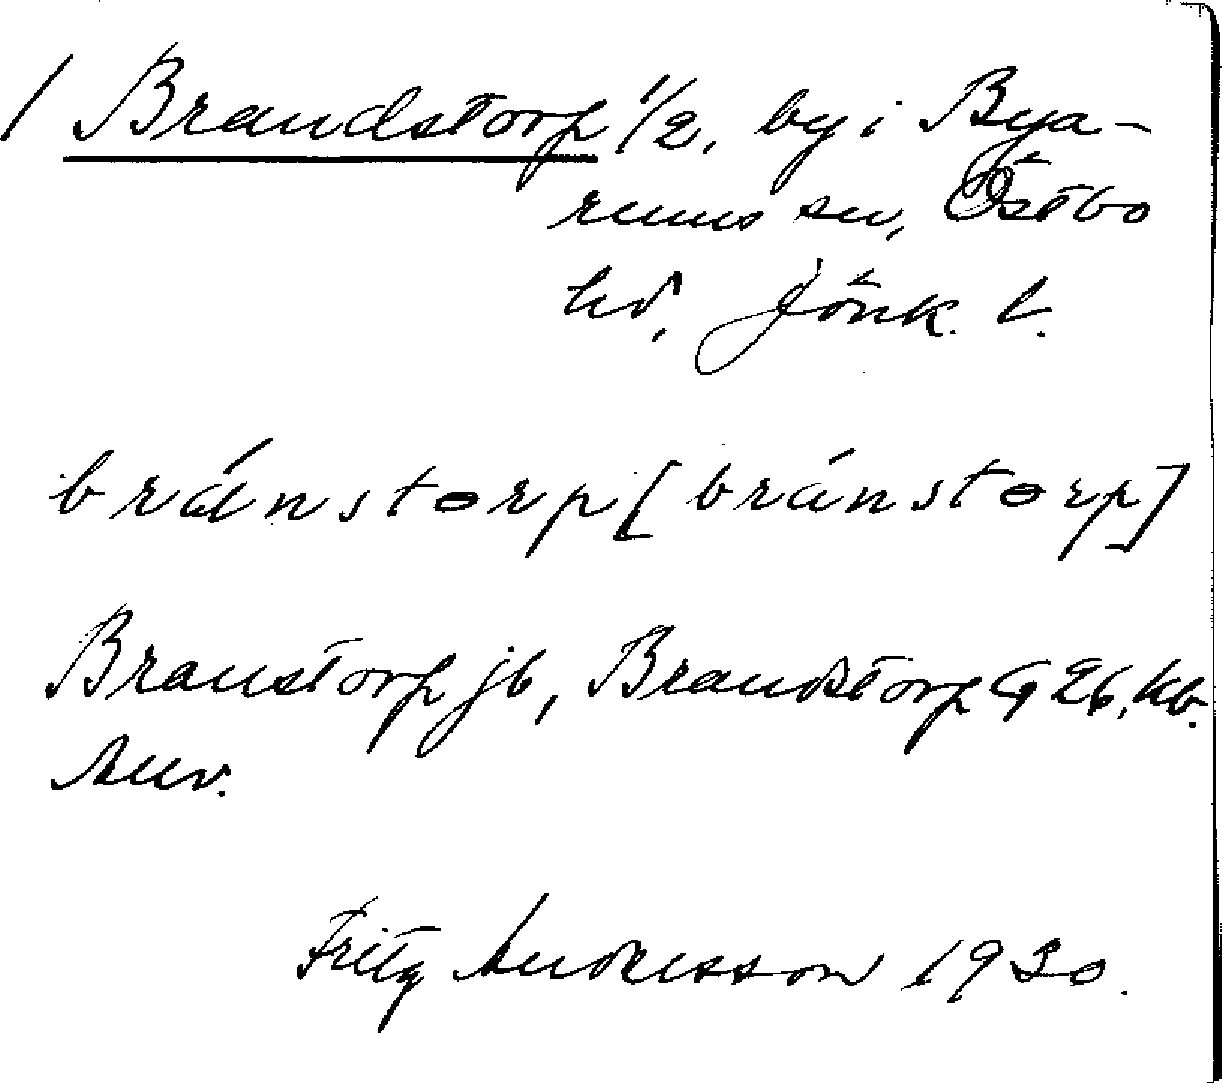 1 Brandstorp 1/2, by i Bya-
rums sn, Östbo
hd, Jönk. l.
bránstɵrp [bránstɵrp]
Branstorp jb, Brandstorp G Eb, kb.
Anv.
Fritz Andersson 1930.